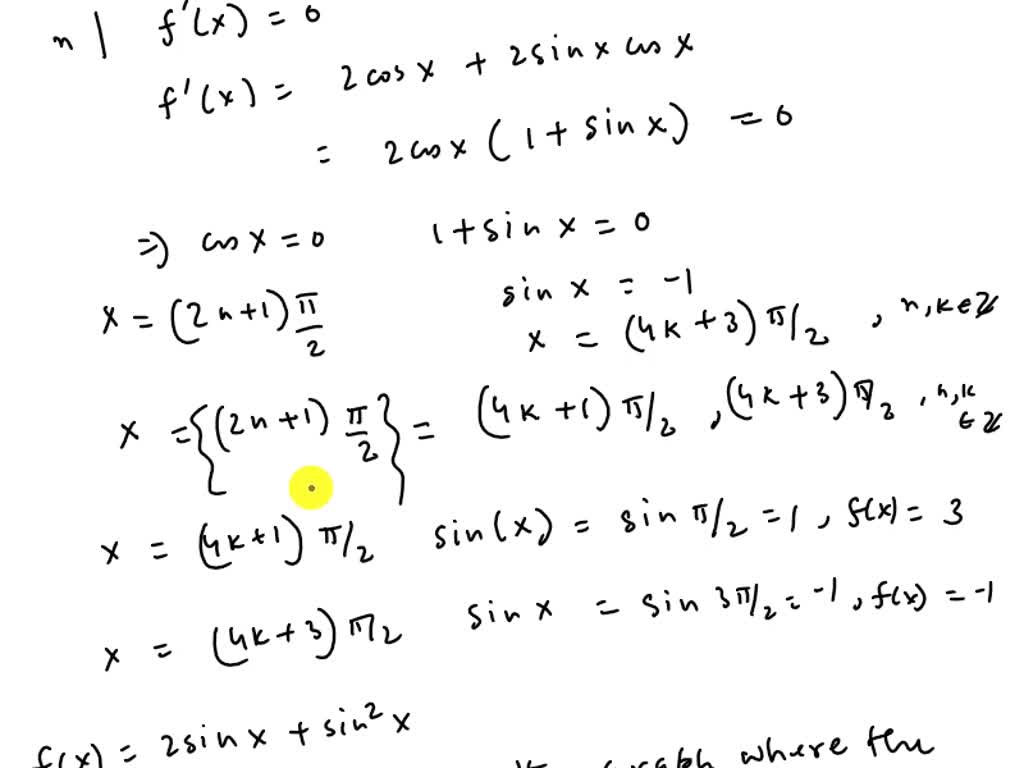 n | f'(x) = 0
f'(x) = 2cosx + 2sinx cosx
= 2cosx (1 + sinx) = 0
=) cosx = 0 1 + sin x = 0
sin x = -1
x = (2n+1) π/2 x = (4k + 3) π/2 , n, k ∈ Z
x = {(2n+1) π/2} = (4k + 1) π/2 , (4k + 3) π/2 , n, k ∈ Z
x = (4k+1) π/2 sin(x) = sin π/2 = 1 , f(x) = 3
x = (4k + 3) π/2 sin x = sin 3π/2 = -1 , f(x) = -1
f(x) = 2sinx + sin²x
graph where the